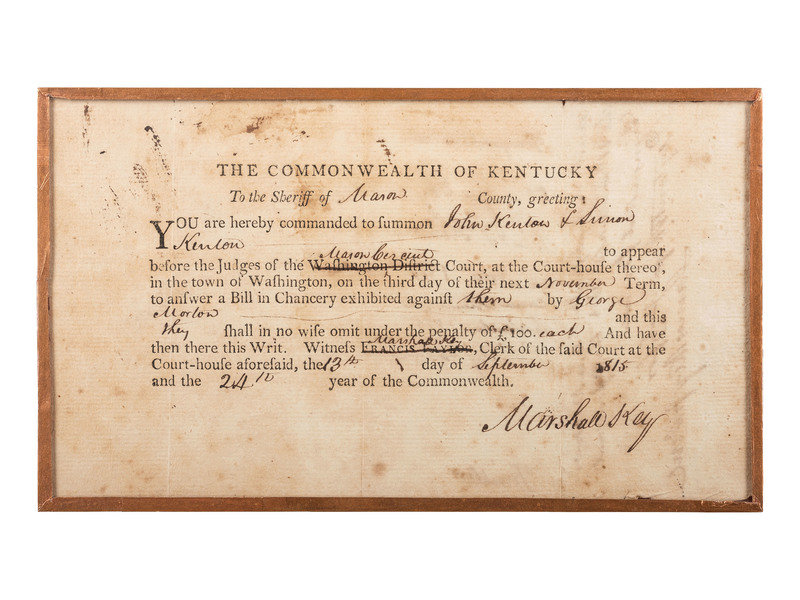 THE COMMONWEALTH OF KENTUCKY
To the Sheriff of Mason County, greeting:
YOU are hereby commanded to ſummon John Kenton & Simon
Kenton to appear
Mason Circuit
before the Judges of the Waſhington Diſtrict Court, at the Court-houſe thereof,
in the town of Waſhington, on the third day of their next November Term,
to anſwer a Bill in Chancery exhibited againſt them by George
Morton and this
they ſhall in no wiſe omit under the penalty of £100. each And have
Marshall Key
then there this Writ. Witneſs FRANCIS TAYLOR, Clerk of the ſaid Court at the
Court-houſe aforeſaid, the 13th day of September 1815
and the 24th year of the Commonwealth.
Marshall Key